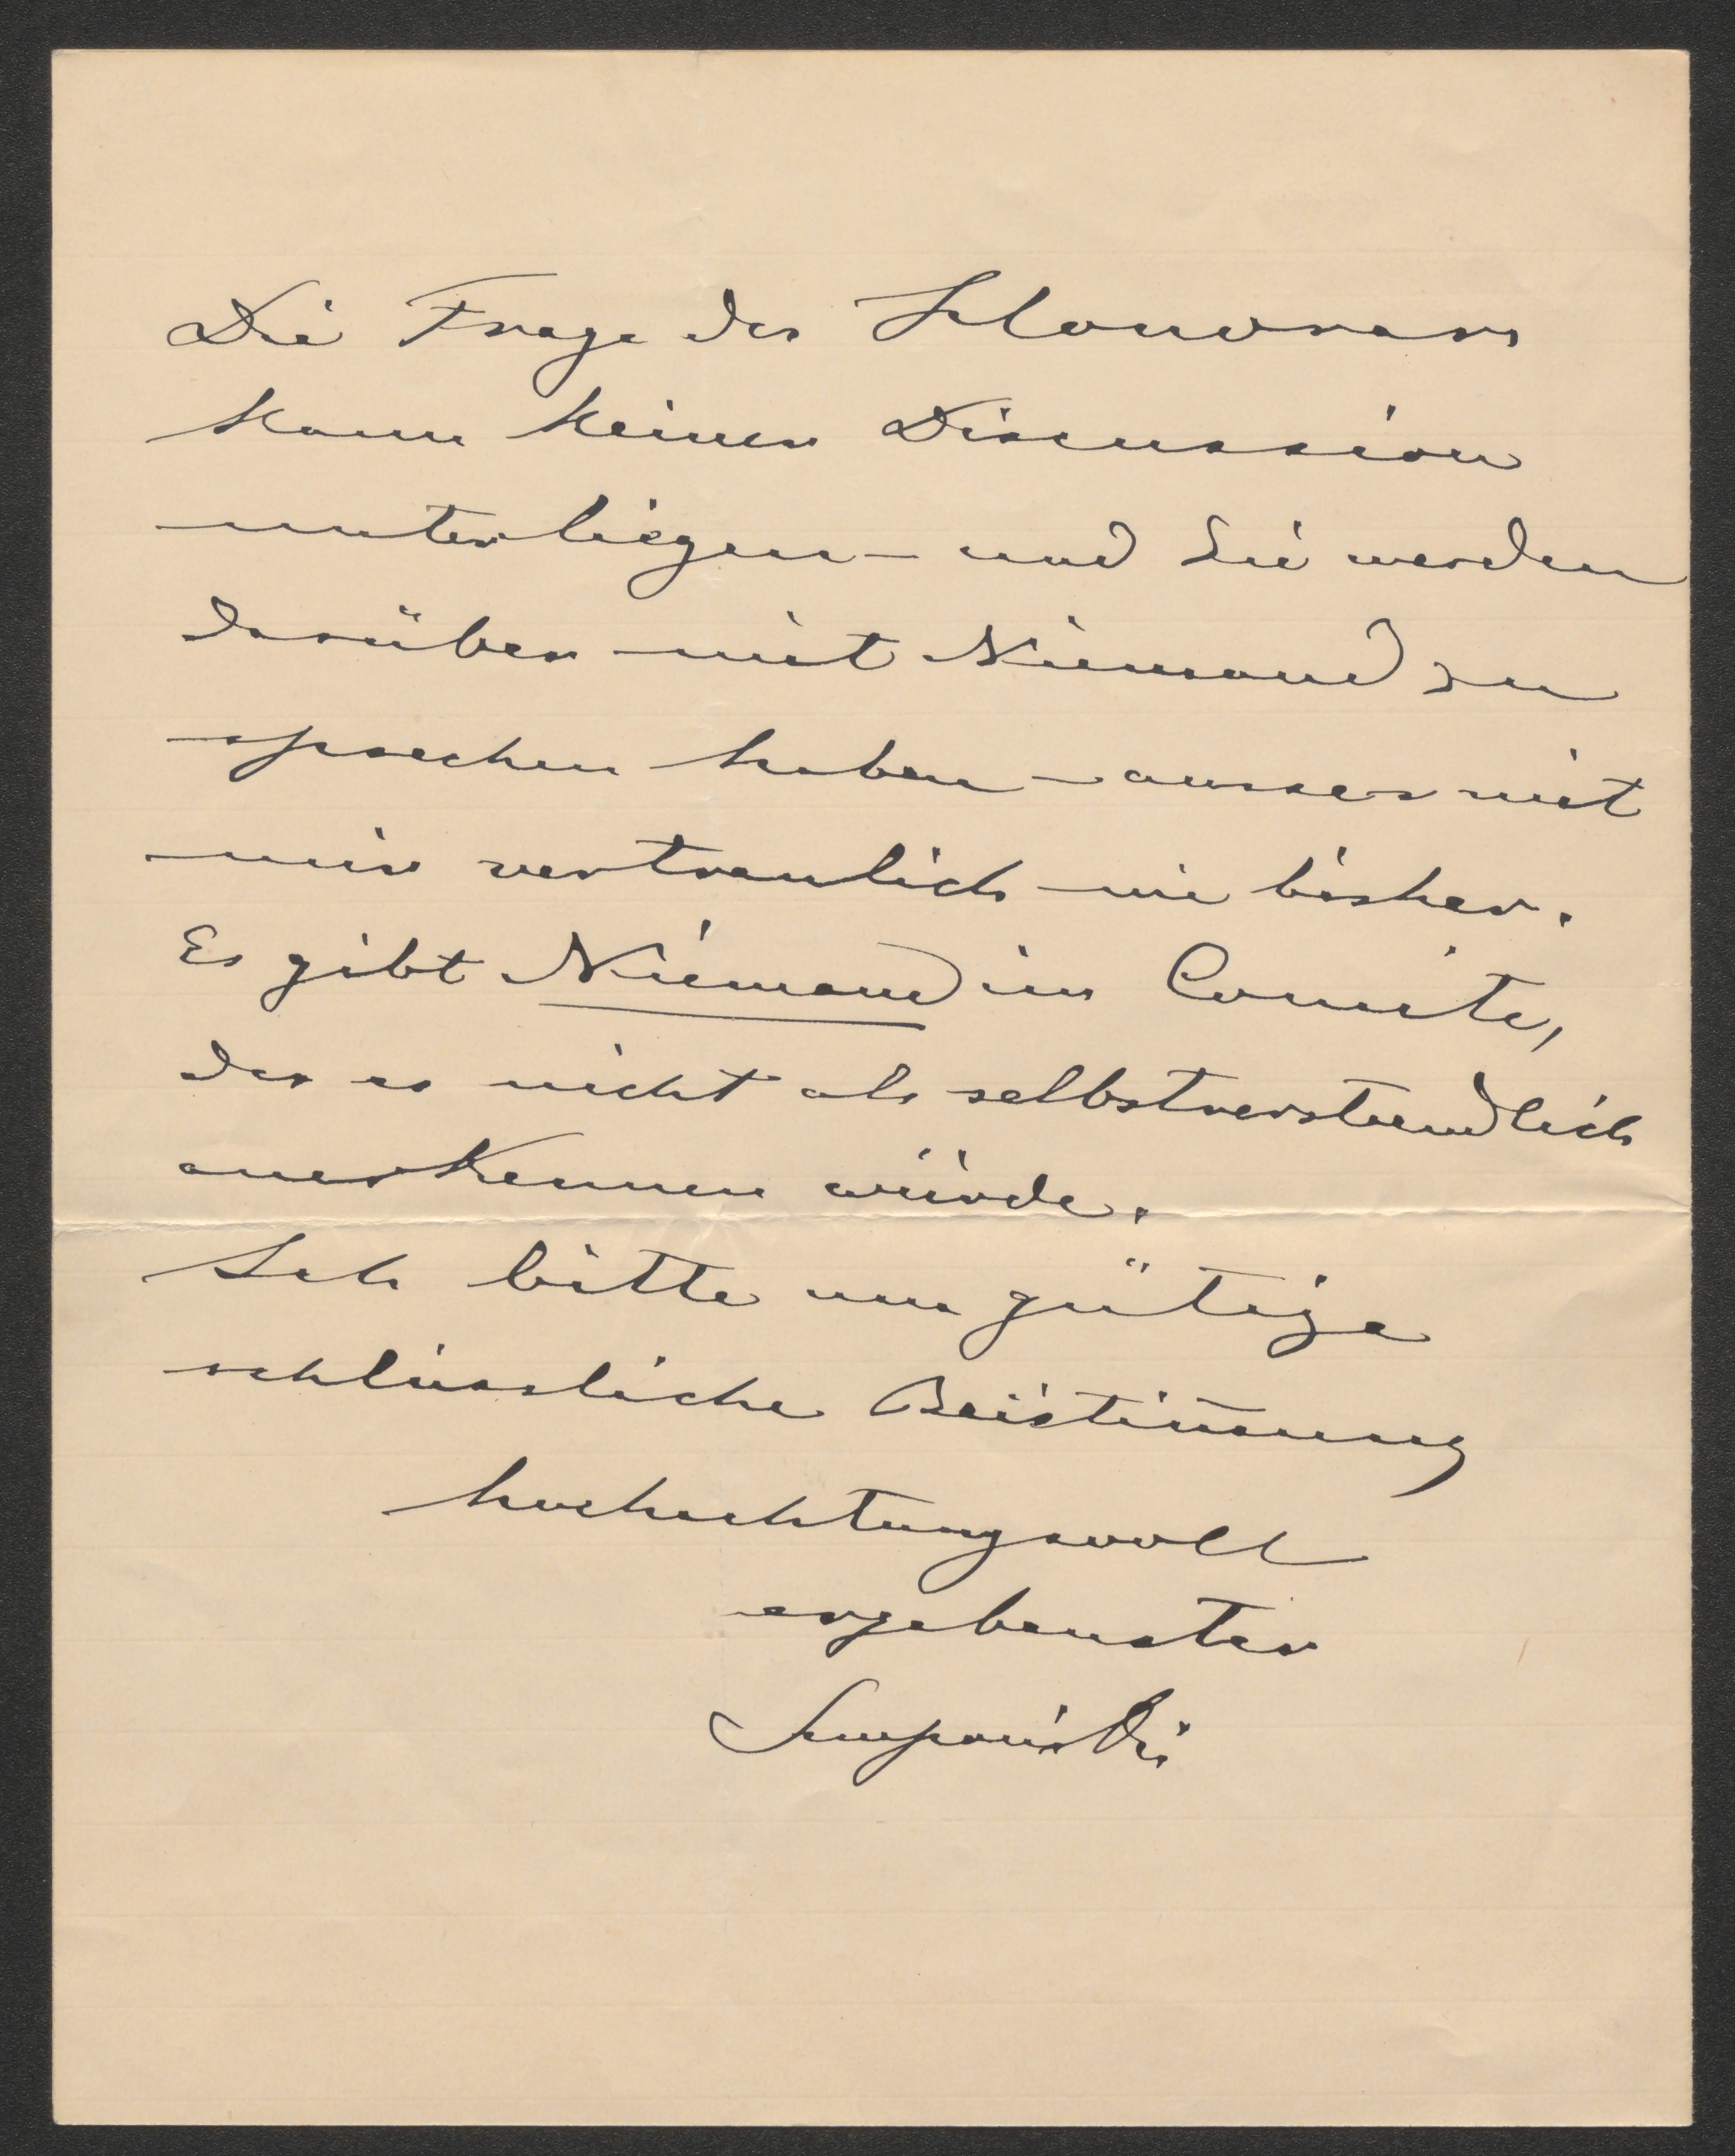 Die Frage des Honorars
kann keiner Discussion
unterliegen – und Sie werden
darüber mit Niemand zu
sprechen haben – ausser mit
mir vertraulich wie bisher.
Es gibt Niemand im Comite,
der es nicht als selbstverstaendlich
anerkennen würde.
Ich bitte um gütige
schliessliche Beistimmung
hochachtungsvoll
ergebenster